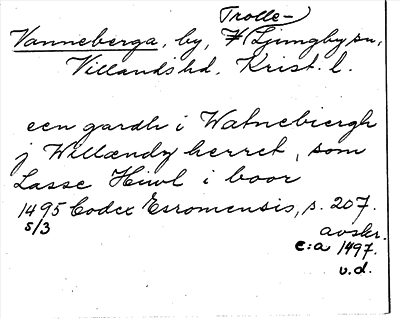 Trolle-
Vanneberga, by, V Ljungby sn,
Villands hd. Krist. l.
een gardh i Watnebiergh
j Willændz herret, som
Lasse Hiwl i boor
1495 Codex Esromensis, s. 207.
5/3
avskr.
c:a 1497.
v.d.